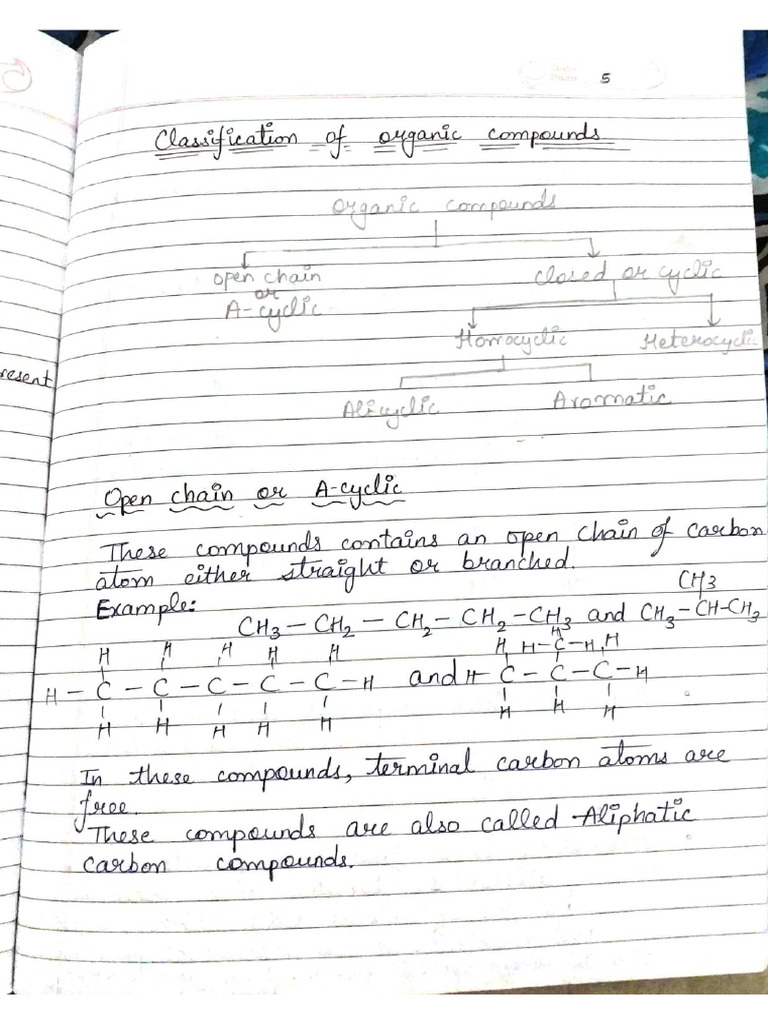 5
Classification of organic compounds
organic compounds
open chain
or
A-cyclic
closed or cyclic
Homocyclic
Heterocyclic
Alicyclic
Aromatic
resent
Open chain or A-cyclic
These compounds contains an open chain of carbon
atom either straight or branched.
CH3
Example:
CH3 – CH2 – CH2 – CH2 – CH3 and CH3 – CH – CH3
H H H H H H H – C – H H
H – C – C – C – C – C – H and H – C – C – C – H
H H H H H H H H
In these compounds, terminal carbon atoms are
free.
These compounds are also called Aliphatic
carbon compounds.